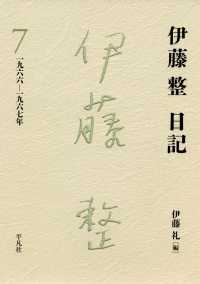 伊藤 整 日記
7
一九六六―一九六七年
伊藤整
伊藤 礼［編］
平凡社